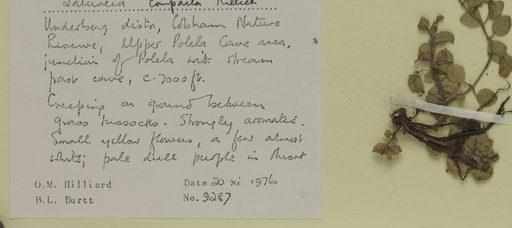 Satureia compacta Killick
Underberg distr., Cobham Nature
Reserve, Upper Polela Cave area,
junction of Polela with stream
past cave, c. 7000 ft.
Creeping on ground between
grass tussocks. Strongly aromatic.
Small yellow flowers, a few almost
white; pale dull purple in throat
O.M. Hilliard Date 20 xi 1976
B.L. Burtt No. 9287